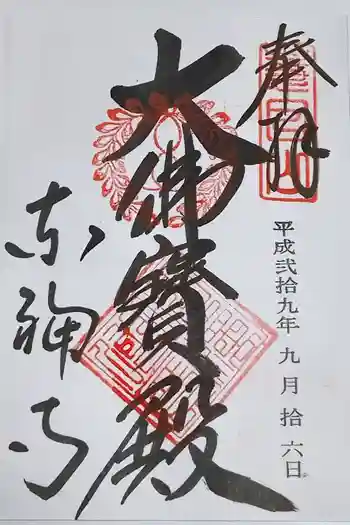 奉拝
平成弐拾九年 九月 拾六日
大佛寶殿
東福寺